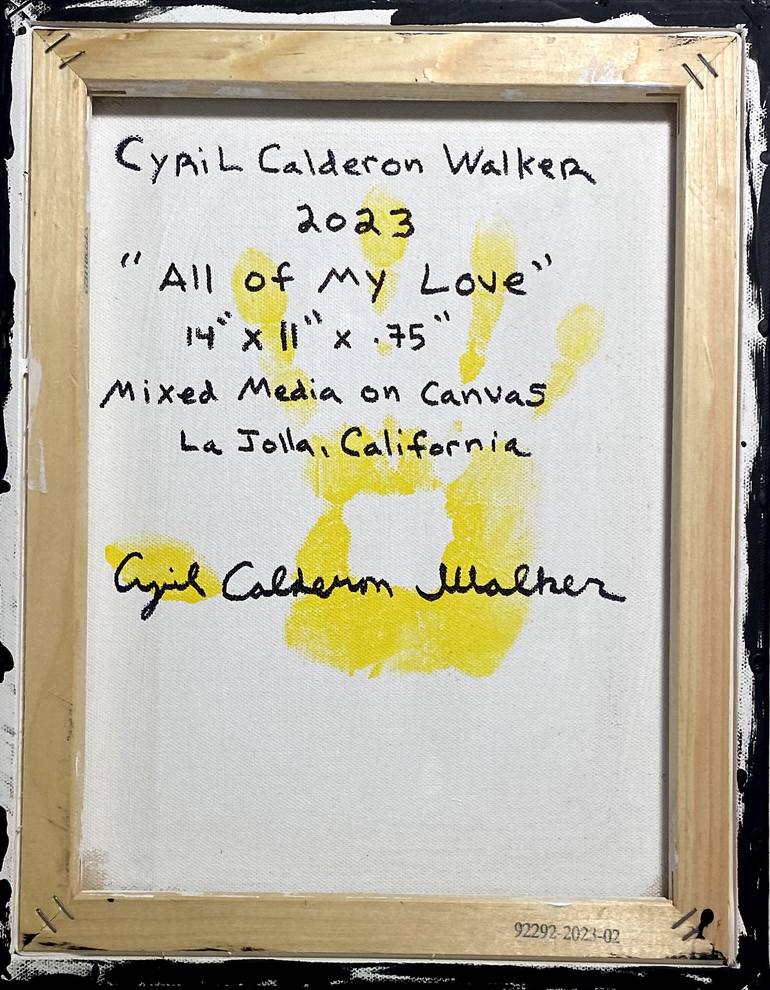 Cyril Calderon Walker
2023
"All of My Love"
14" x 11" x .75"
Mixed Media on Canvas
La Jolla, California
Cyril Calderon Walker
92292-2023-02